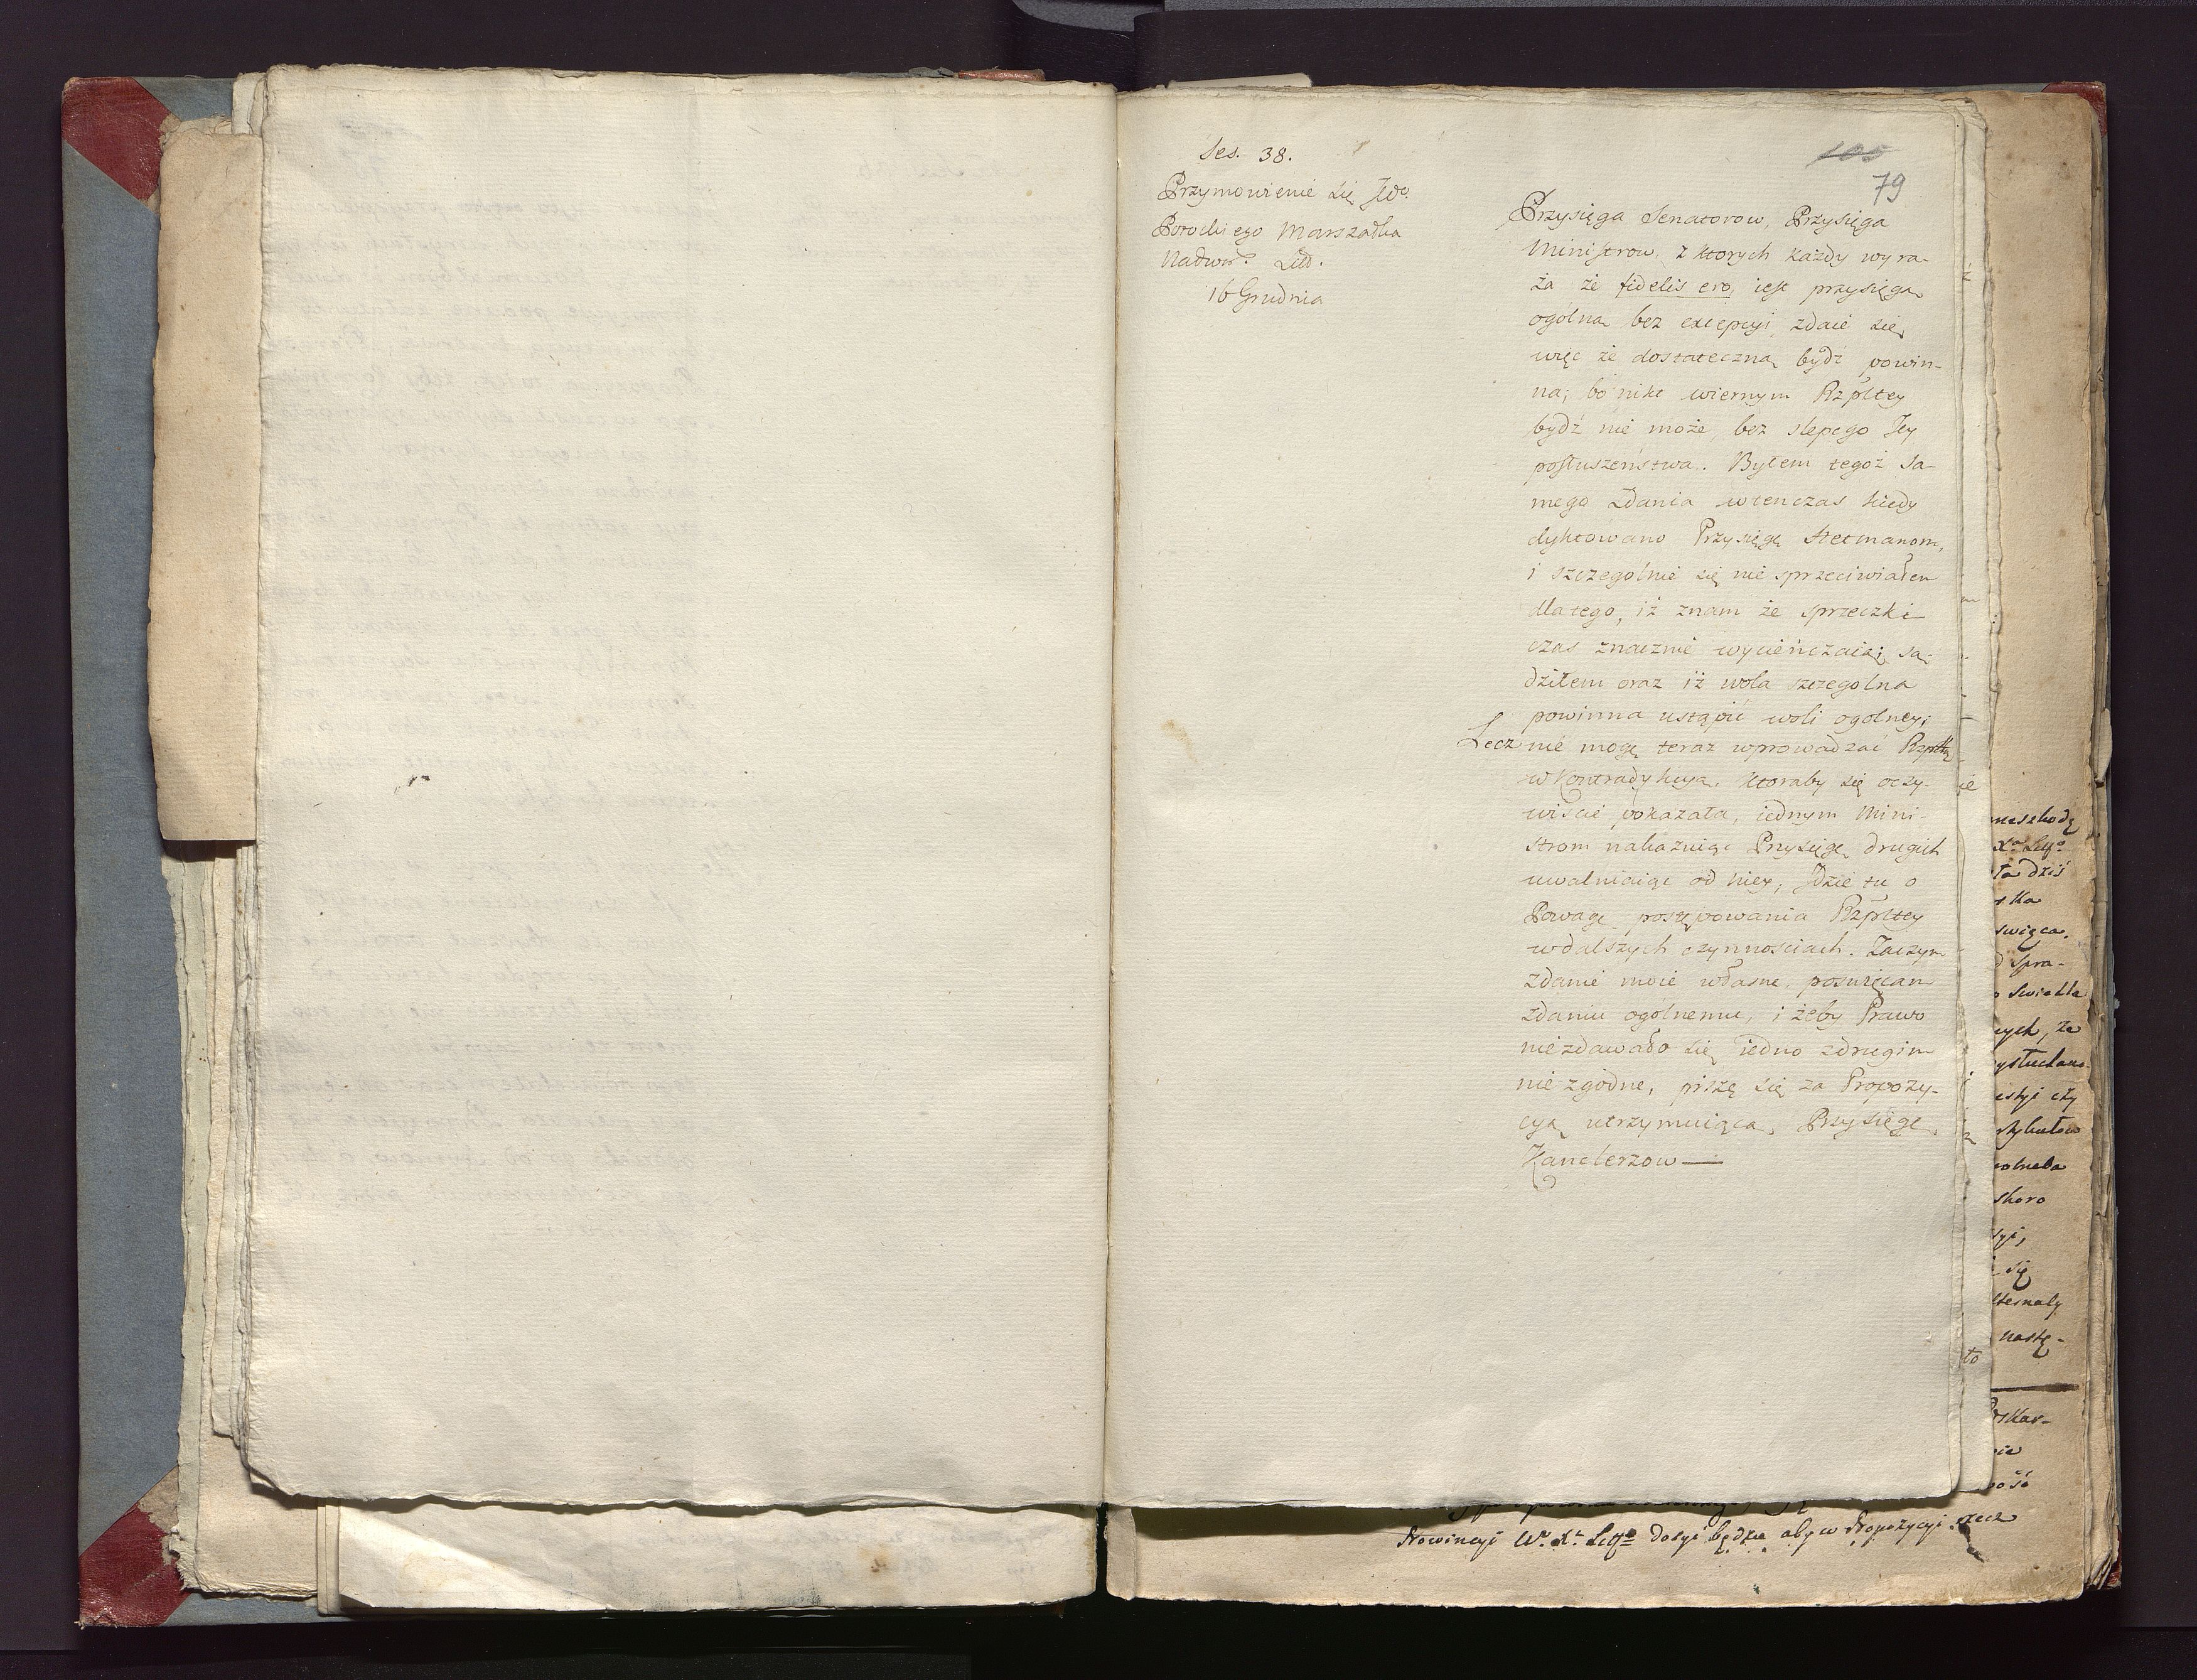 Ses. 38.
Przymowienie się JW°.
Potockiego Marszałka
Nadwor°. Litt.
16 Grudnia
105
79
Przysięga Senatorow, Przysięga
Ministrow, z ktorych każdy wyra-
ża że fidelis ero, iest przysięgą
ogolną bez excepcyi, zdaie się
więc że dostateczną bydź powin-
na; bo nikt wiernym Rzpltey
bydź nie może, bez slepego Jey
posłuszeństwa. Byłem tegoż sa-
mego zdania wtenczas kiedy
dyktowano Przysięgę Hetmanom,
i szczegolnie się nie sprzeciwiałem
dlatego, iż znam że sprzeczki
czas znacznie wycieńczaią; są-
dziłem oraz iż wola szczegolna
powinna ustąpić woli ogolney;
Lecz nie mogę teraz wprowadzać Rzpltą
w kontradykcyą. ktoraby się oczy-
wiscie pokazała, iednym Mini-
strom nakazuiąc Przysięgę drugich
uwalniaiąc od niey; Jdzie tu o
Powagę postępowania Rzpltey
w dalszych czynnosciach. Zaczym
zdanie moie własne, poswięcam
zdaniu ogolnemu, i żeby Prawo
niezdawało się iedno zdrugim
nie zgodne, piszę się za Propozy-
cyą utrzymuiącą, Przysięgę
Kanclerzow —
ie
to
Xa Litgo
ła dziś
swięca.
Spra-
swiatła
nych, że
skoro
się
nastę-
Prowincyi W. X. Litgo dosyć będzie aby w Propozycyi rzecz